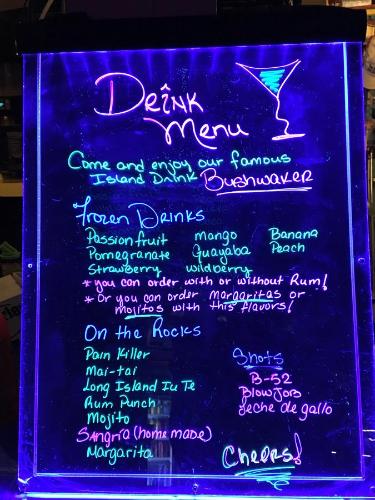 Drink
Menu
Come and enjoy our famous
Island Drink Bushwaker
Frozen Drinks
Passionfruit mango Banana
Pomegranate Guayaba Peach
Strawberry wildberry
*you can order with or without Rum!
*Or you can order margaritas or
mojitos with this flavors!
On the Rocks
Pain Killer
Mai-tai
Long Island Ic Te
Rum Punch
Mojito
Sangria (home made)
Margarita
Shots
B-52
BlowJob
Leche de gallo
Cheers!